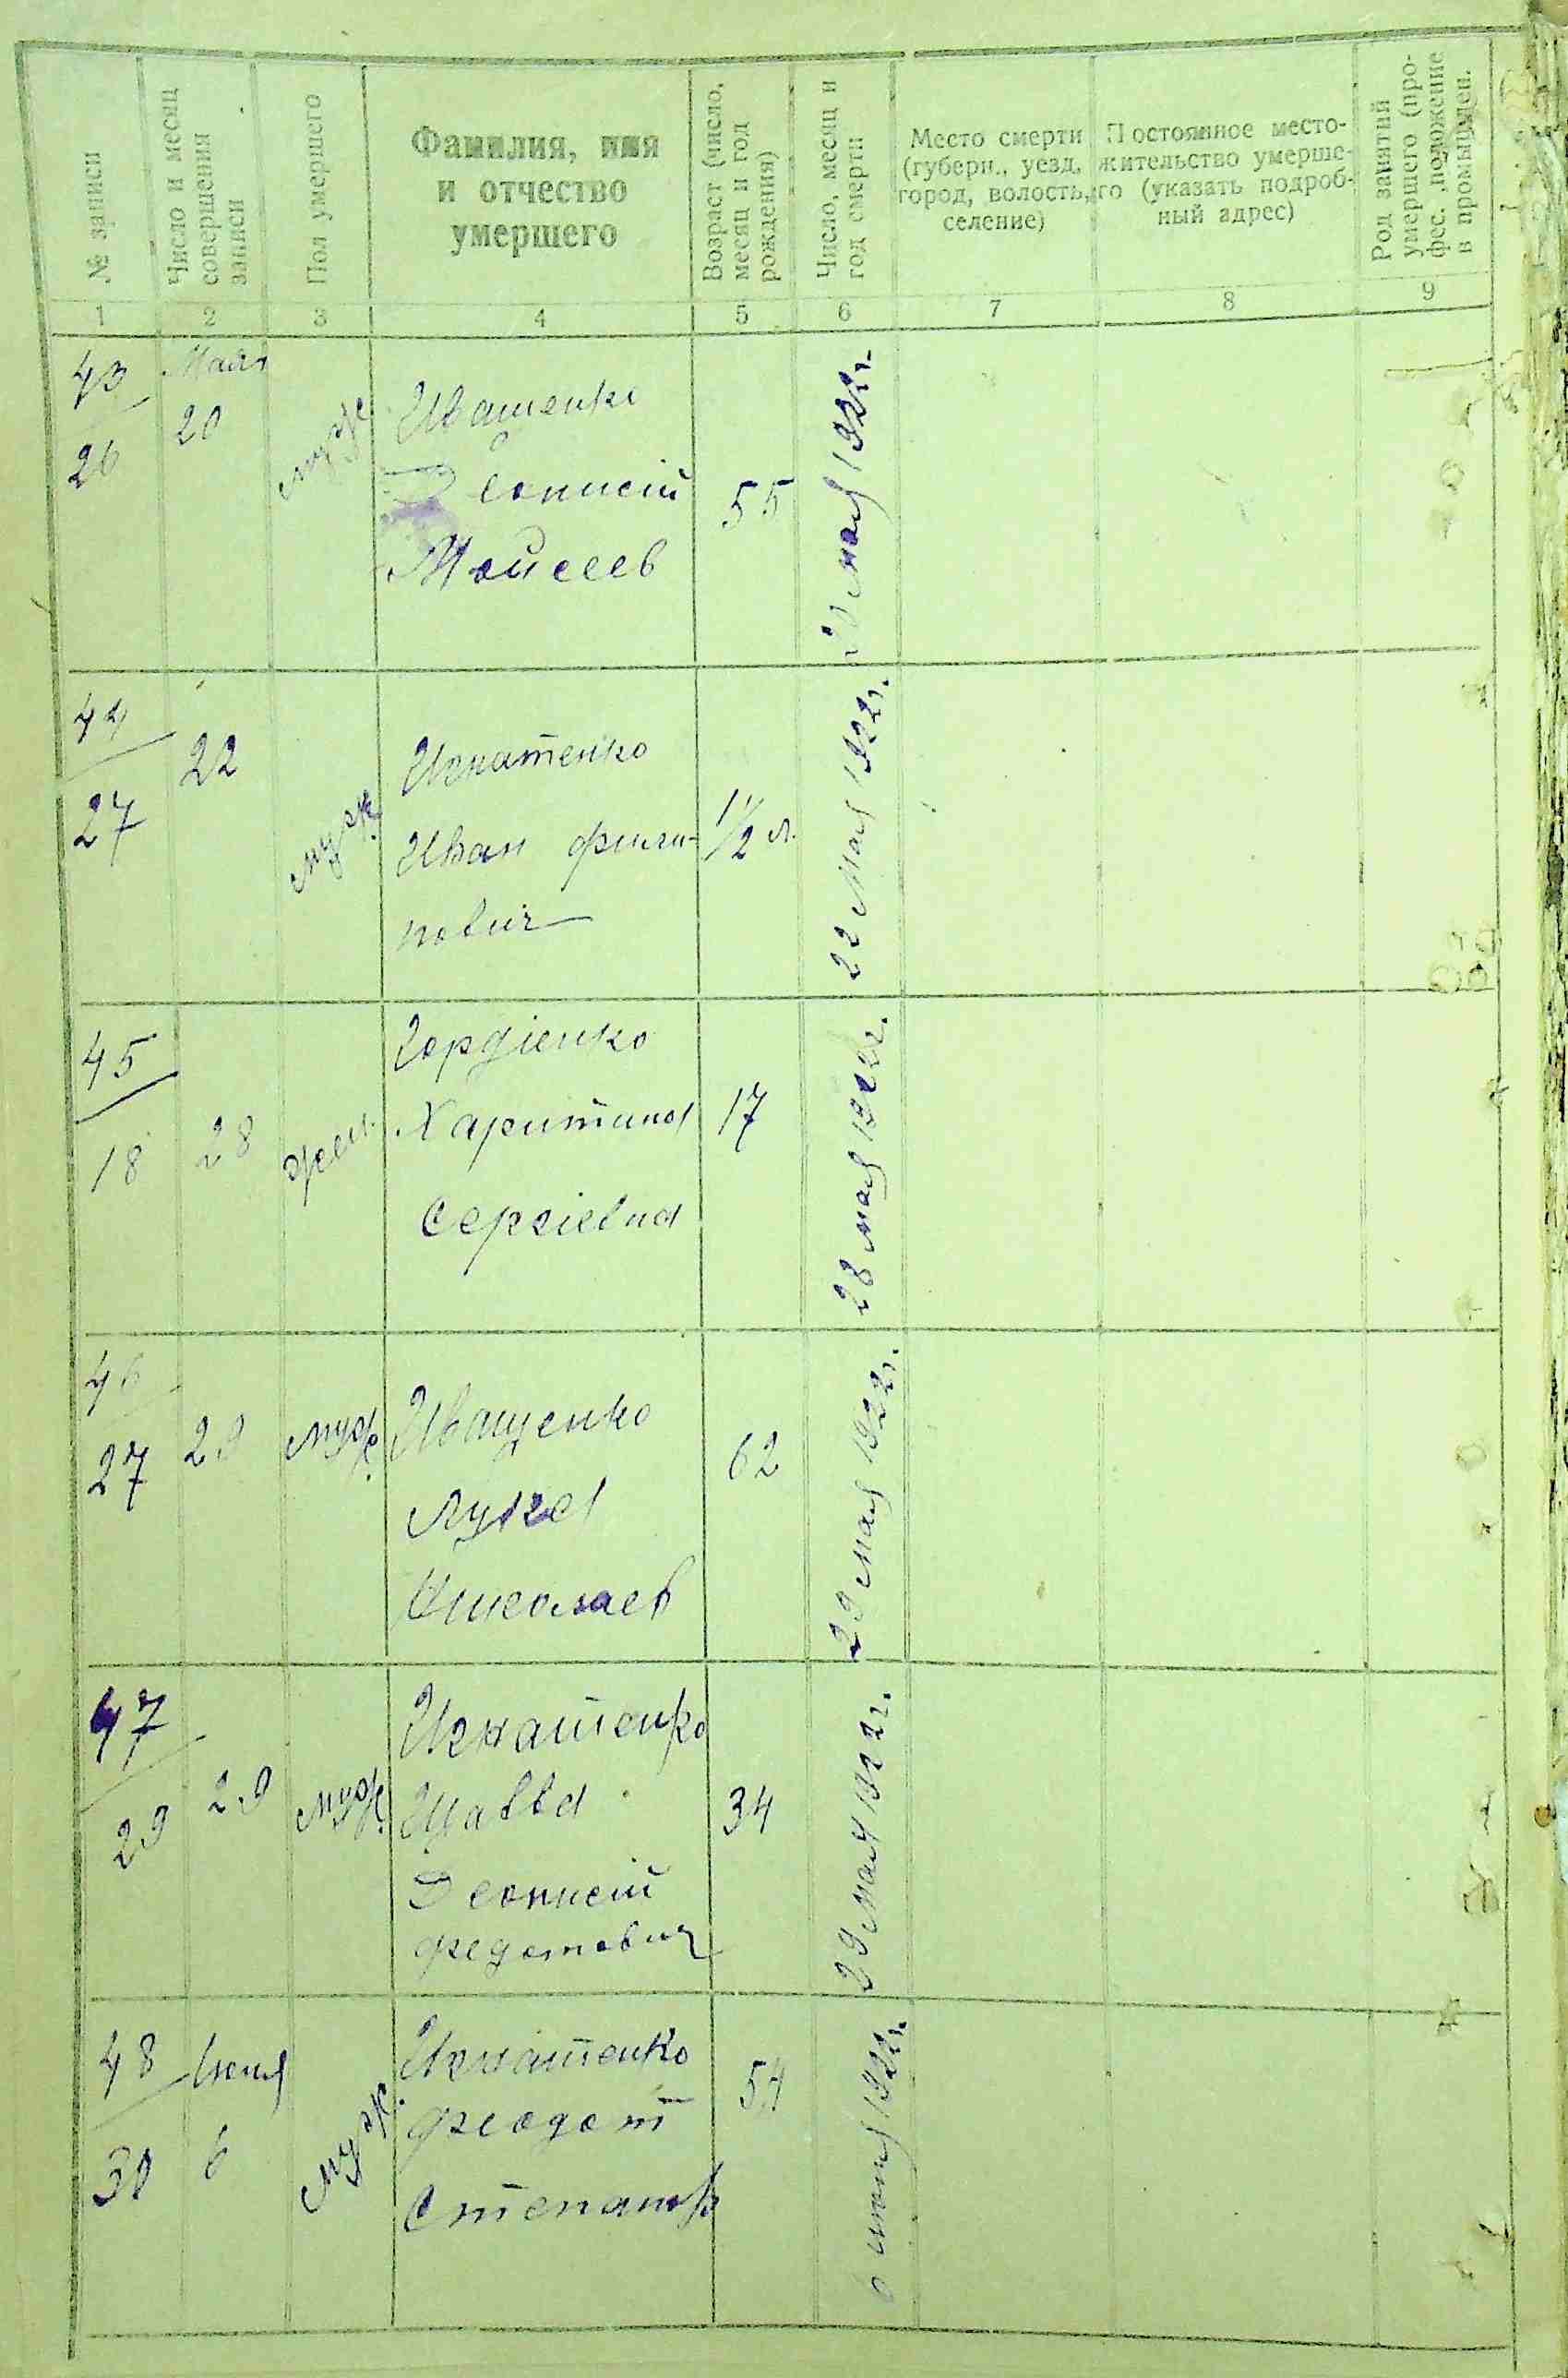 № записи
Число и месяц
совершения
записи
Пол умершего
Фамилия, имя
и отчество
умершего
Возраст (число,
месяц и год
рождения)
Число, месяц и
год смерти
Место смерти
(губерн., уезд,
город, волость,
селение)
Постоянное место-
жительство умерше-
го (указать подроб-
ный адрес)
Род занятий
умершего (про-
фес. положение
в промышлен.
1 2 3 4 5 6 7 8 9
43
26
Мая
20
муж
Иващенко
Деонисій
Мойсеев
55
20 мая 1922г.
44
27
22
муж.
Игнатенко
Иван фили-
пович
1 1/2 л.
22 Мая 1922г.
45
18
28
жен.
Гордіенко
Харитина
Сергіевна
17
28 мая 1922г.
46
27
29
муж.
Иващенко
Лука
Николаев
62
29 мая 1922г.
47
29
29
муж.
Игнатенко
Деонисій
федотович
34
29 мая 1922г.
48
30
Июня
6
муж.
Игнатенко
феодот
Степанов
54
6 июня 1922г.